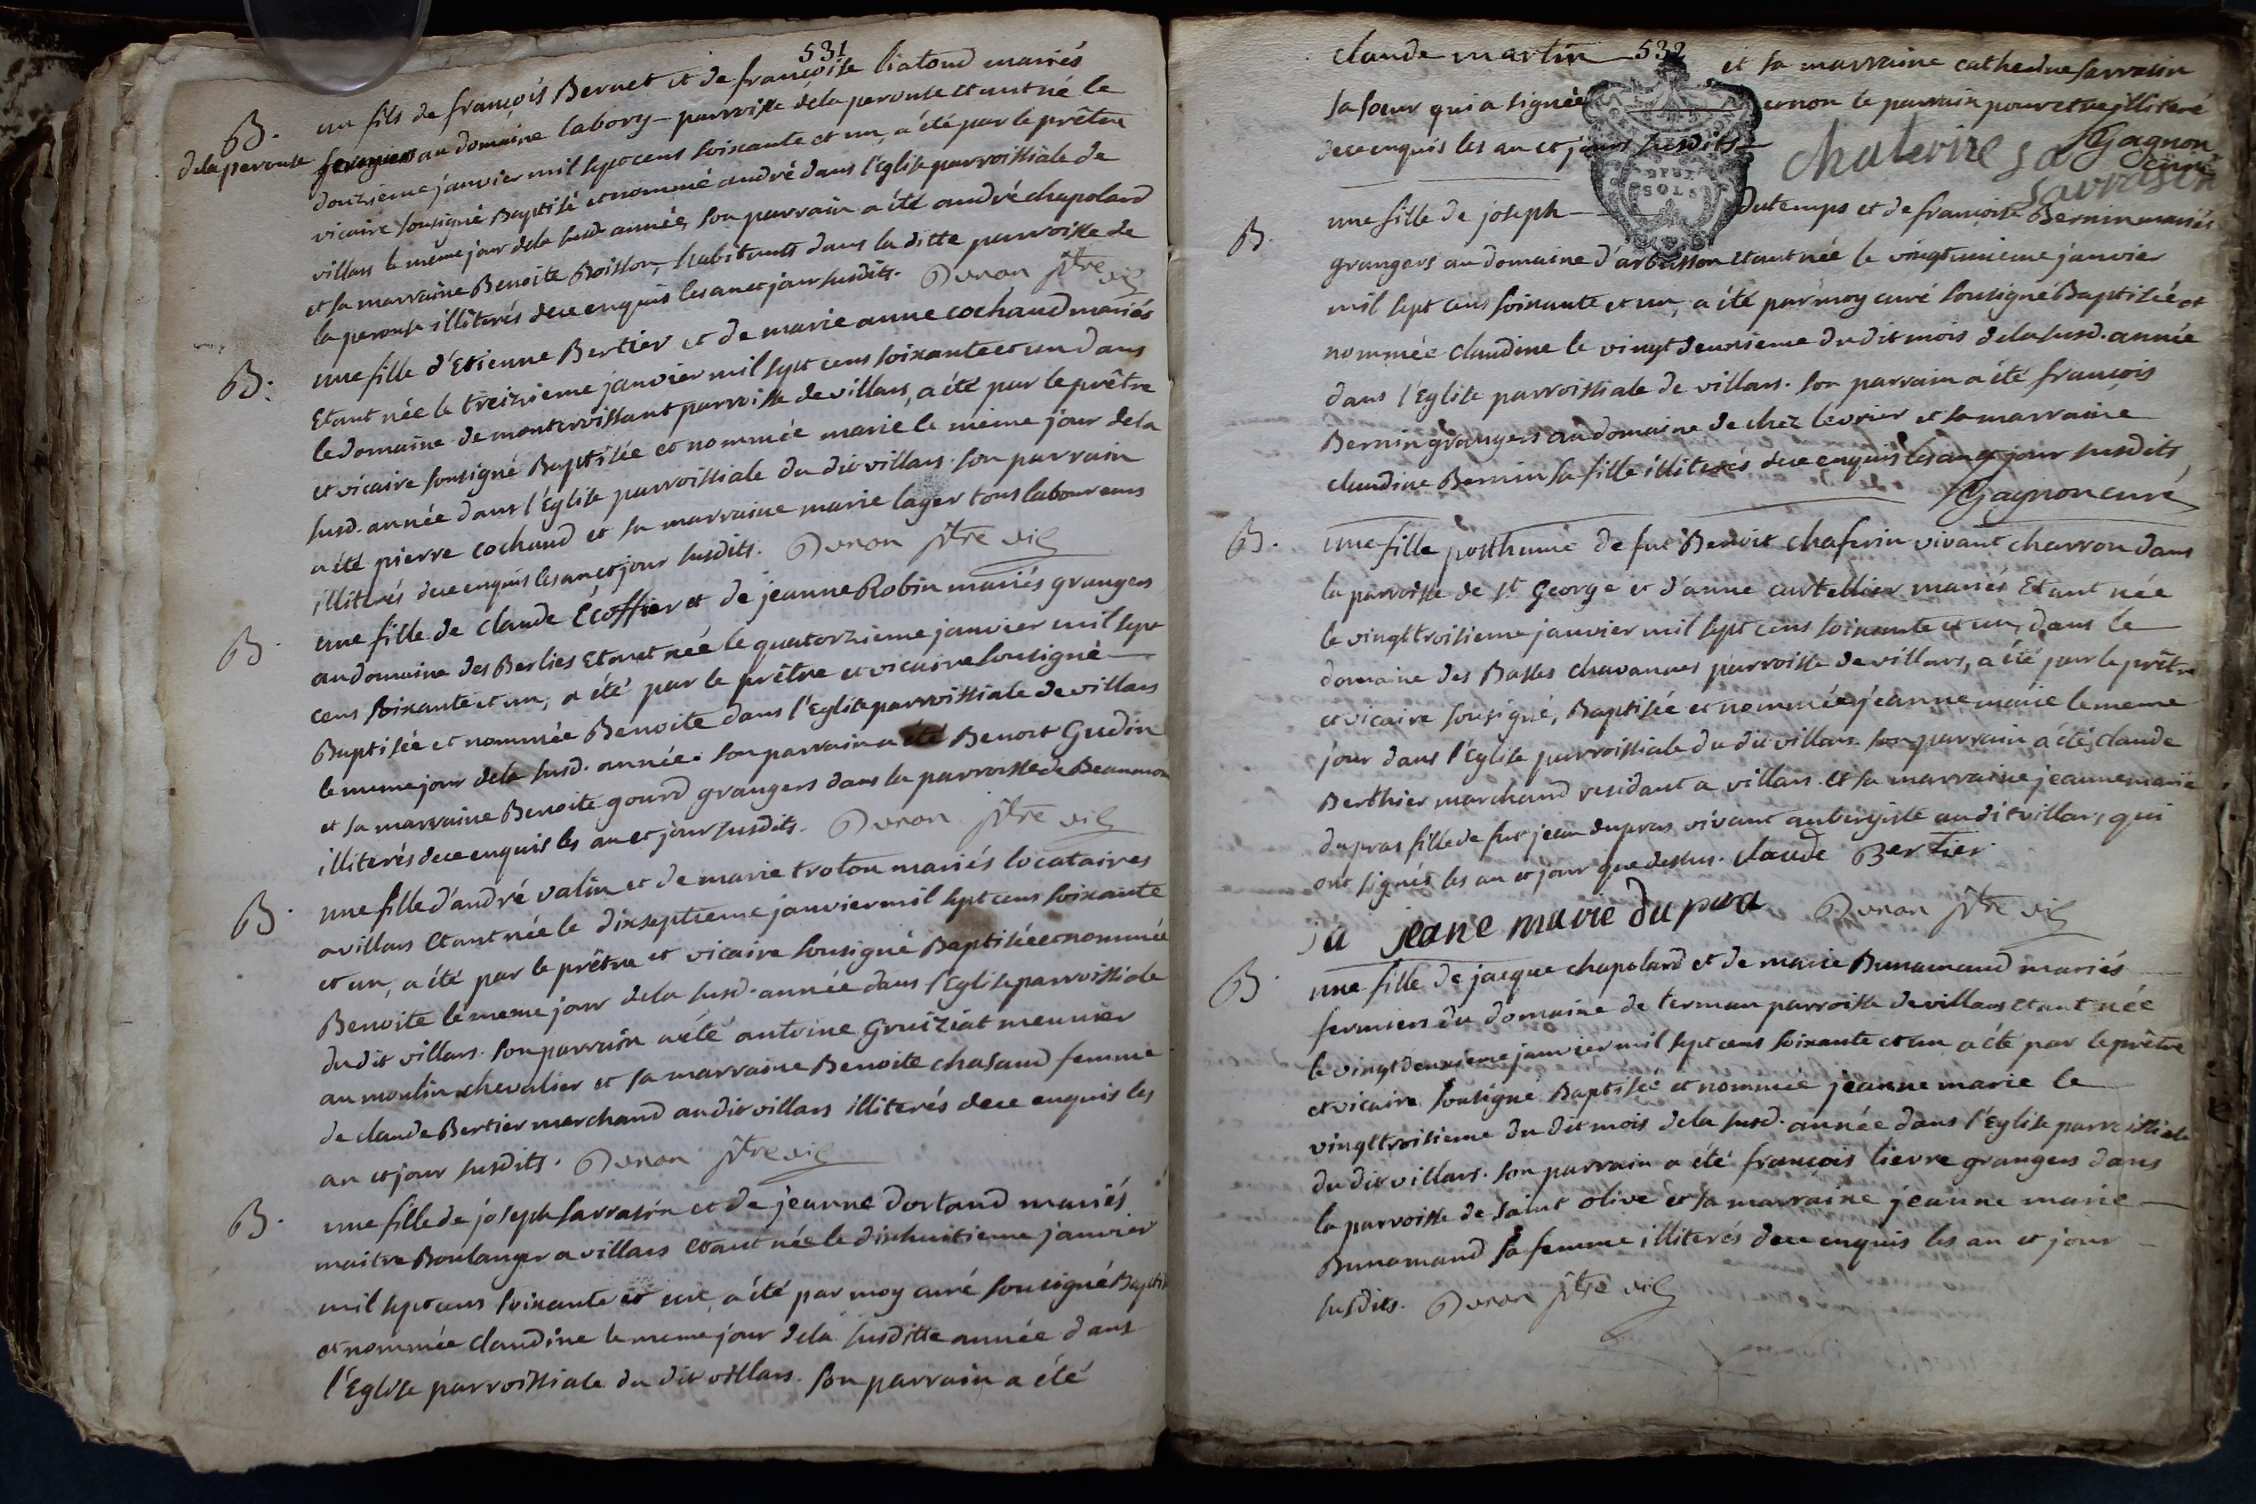 531
B. un fils de françois Bernet et de françoise liatoud mariés
dela perouse fermiers au domaine labory parroisse dela perouse etant né le
douzieme janvier mil sept cens soixante et un, a été par le prêtre
vicaire sousigné Baptisé et nommé andré dans l'Eglise parroissiale de
villars le même jour dela susd. année, son parrain a été andré chapolard
et sa marraine Benoite Boisson, habitants dans la ditte parroisse de
la perouse illiterés dece enquis les an et jour susdits. Duron ptre vic
B. une fille d'Etienne Bertier et de marie anne cochaud mariés
Etant née le treizieme janvier mil sept cens soixante et un dans
le domaine de montervissant parroisse de villars, a été par le prêtre
et vicaire sousigné Baptisée et nommée marie le même jour dela
susd. année dans l'Eglise parroissiale du dit villars. son parrain
a été pierre cochaud et sa marraine marie lager tous laboureurs
illiterés dece enquis les an et jour susdits. Duron ptre vic
B. une fille de claude Ecoffier et de jeanne Robin mariés grangers
au domaine des Berlies Etant née le quatorzieme janvier mil sept
cens soixante et un, a été par le prêtre et vicaire sousigné
Baptisée et nommée Benoite dans l'Eglise parroissiale de villars
le meme jour dela susd. année. son parrain a été Benoit Gudin
et sa marraine Benoite gourd grangers dans la parroisse de Beaumon
illiterés dece enquis les an et jour susdits. Duron ptre vic
B. une fille d'andré valin et de marie troton mariés locataires
a villars Etant née le dixseptieme janvier mil sept cens soixante
et un, a été par le prêtre et vicaire sousigné Baptisée et nommée
Benoite le meme jour dela susd. année dans l'Eglise parroissiale
du dit villars. son parrain a été antoine Gruiziat meunier
au moulin chevalier et sa marraine Benoite chasaud femme
de claude Bertier marchand au dit villars illiterés dece enquis les
an et jour susdits. Duron ptre vic
B. une fille de joseph sarrasin et de jeanne dortand mariés
maitre Boulanger a villars etant née le dixhuitieme janvier
mil sept cens soixante et un, a été par moy curé sousigné Baptis
et nommée claudine le meme jour dela susditte année dans
l'Eglise parroissiale du dit villars. son parrain a été
532
claude martin et sa marraine catherine sarrasin
sa soeur qui a signée et non le parrain pour etre illiteré
dece enquis les an et jours susdits
Gagnon curé
chaterine sa
sarrasin
DEUX SOLS
B. une fille de joseph Dutemps et de françoise Bernin mariés
grangers au domaine d'arbusson etant née le vingtunieme janvier
mil sept cens soixante et un, a été par moy curé sousigné Baptisée et
nommée claudine le vingt deuxieme du dit mois dela susd. année
dans l'Eglise parroissiale de villars. son parrain a été françois
Bernin grangers au domaine de chez levrier et sa marraine
claudine Bernin sa fille illiterés dece enquis les an et jour susdits
Gagnon curé
B. une fille posthume de fut Benoit chaferin vivant charron dans
la parroisse de st George et d'anne curtellier mariés Etant née
le vingttroisieme janvier mil sept cens soixante et un, dans le
domaine des Basses chavannes parroisse de villars, a été par le prêtre
et vicaire sousigné, Baptisée et nommée jeanne marie le meme
jour dans l'Eglise parroissiale du dit villars. son parrain a été claude
Berthier marchand residant a villars. et sa marraine jeanne marie
dupras fille de fut jean dupras vivant aubergiste au dit villars, qui
ont signés les an et jour que dessus. claude Bertier
jeane marie du pra Duron ptre vic
B. une fille de jacque chapolard et de marie Bunamand mariés
fermiers du domaine de terman parroisse de villars etant née
le vingtdeuxieme janvier mil sept cens soixante et un a été par le prêtre
et vicaire sousigné Baptisée et nommée jeanne marie le
vingttroisieme du dit mois dela susd. année dans l'Eglise parroissiale
du dit villars. son parrain a été françois lievre grangers dans
la parroisse de saint olive et sa marraine jeanne marie
Bunamand sa femme illiterés dece enquis les an et jour
susdits. Duron ptre vic